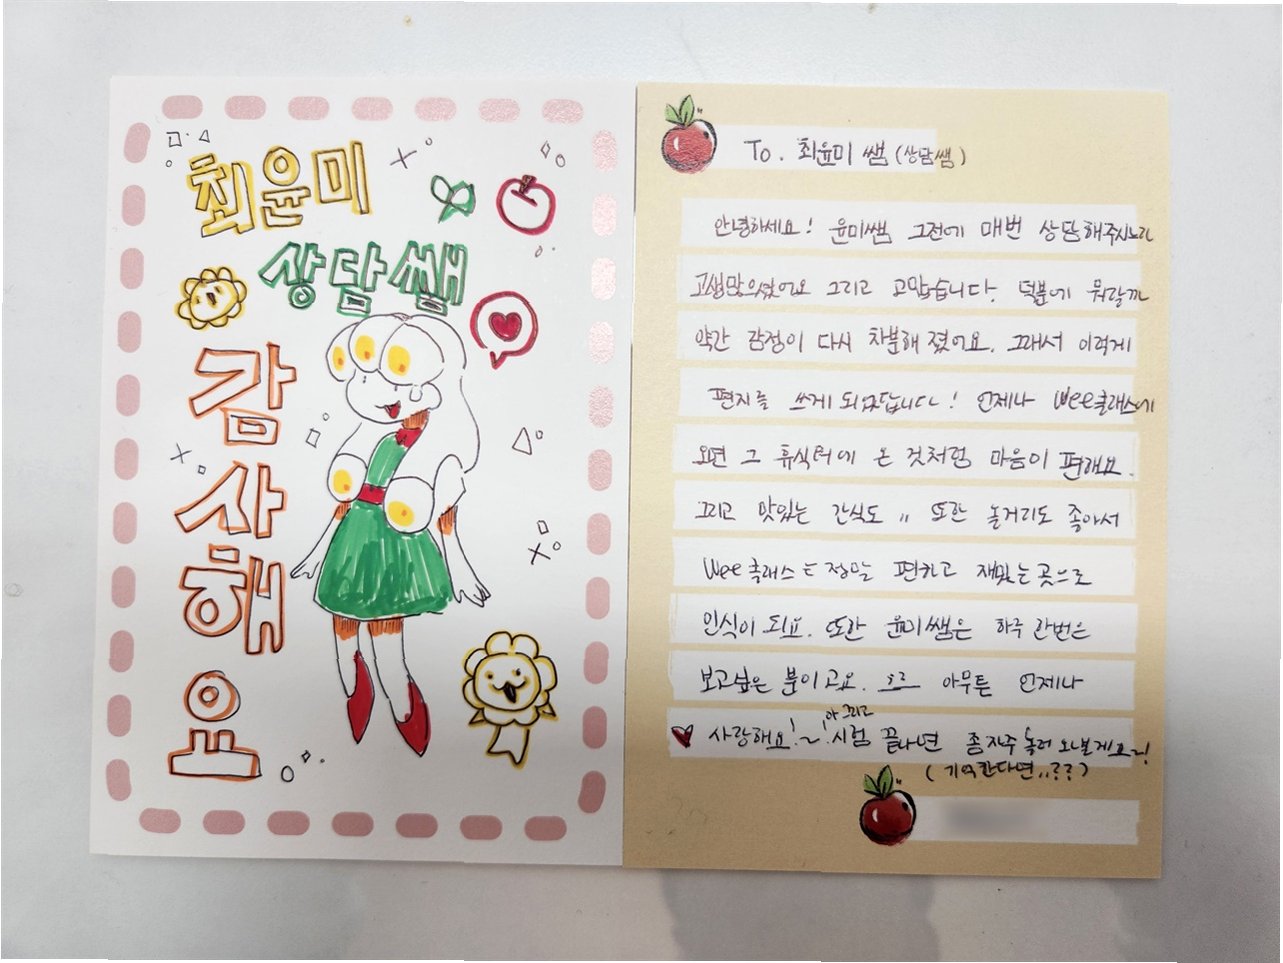 최윤미
상담쌤
감
사
해
요
To. 최윤미 쌤 (상담쌤)
안녕하세요! 윤미쌤 그전에 매번 상담해주시느라
고생많으셨어요 그리고 고맙습니다. 덕분에 뭐랄까
약간 감정이 다시 차분해 졌어요. 그래서 이렇게
편지를 쓰게 되었답니다! 언제나 Wee클래스에
오면 그 휴식터에 온 것처럼 마음이 편해요.
그리고 맛있는 간식도,, 또한 놀거리도 좋아서
Wee클래스는 정말 편하고 재밌는 곳으로
인식이 되요. 또한 윤미쌤은 하루 한번은
보고싶은 분이고요. ㅎㅎ 아무튼 언제나
아 그리고
사랑해요!~! 시험 끝나면 좀 자주 놀러 오낼게요!
(기억한다면..??)